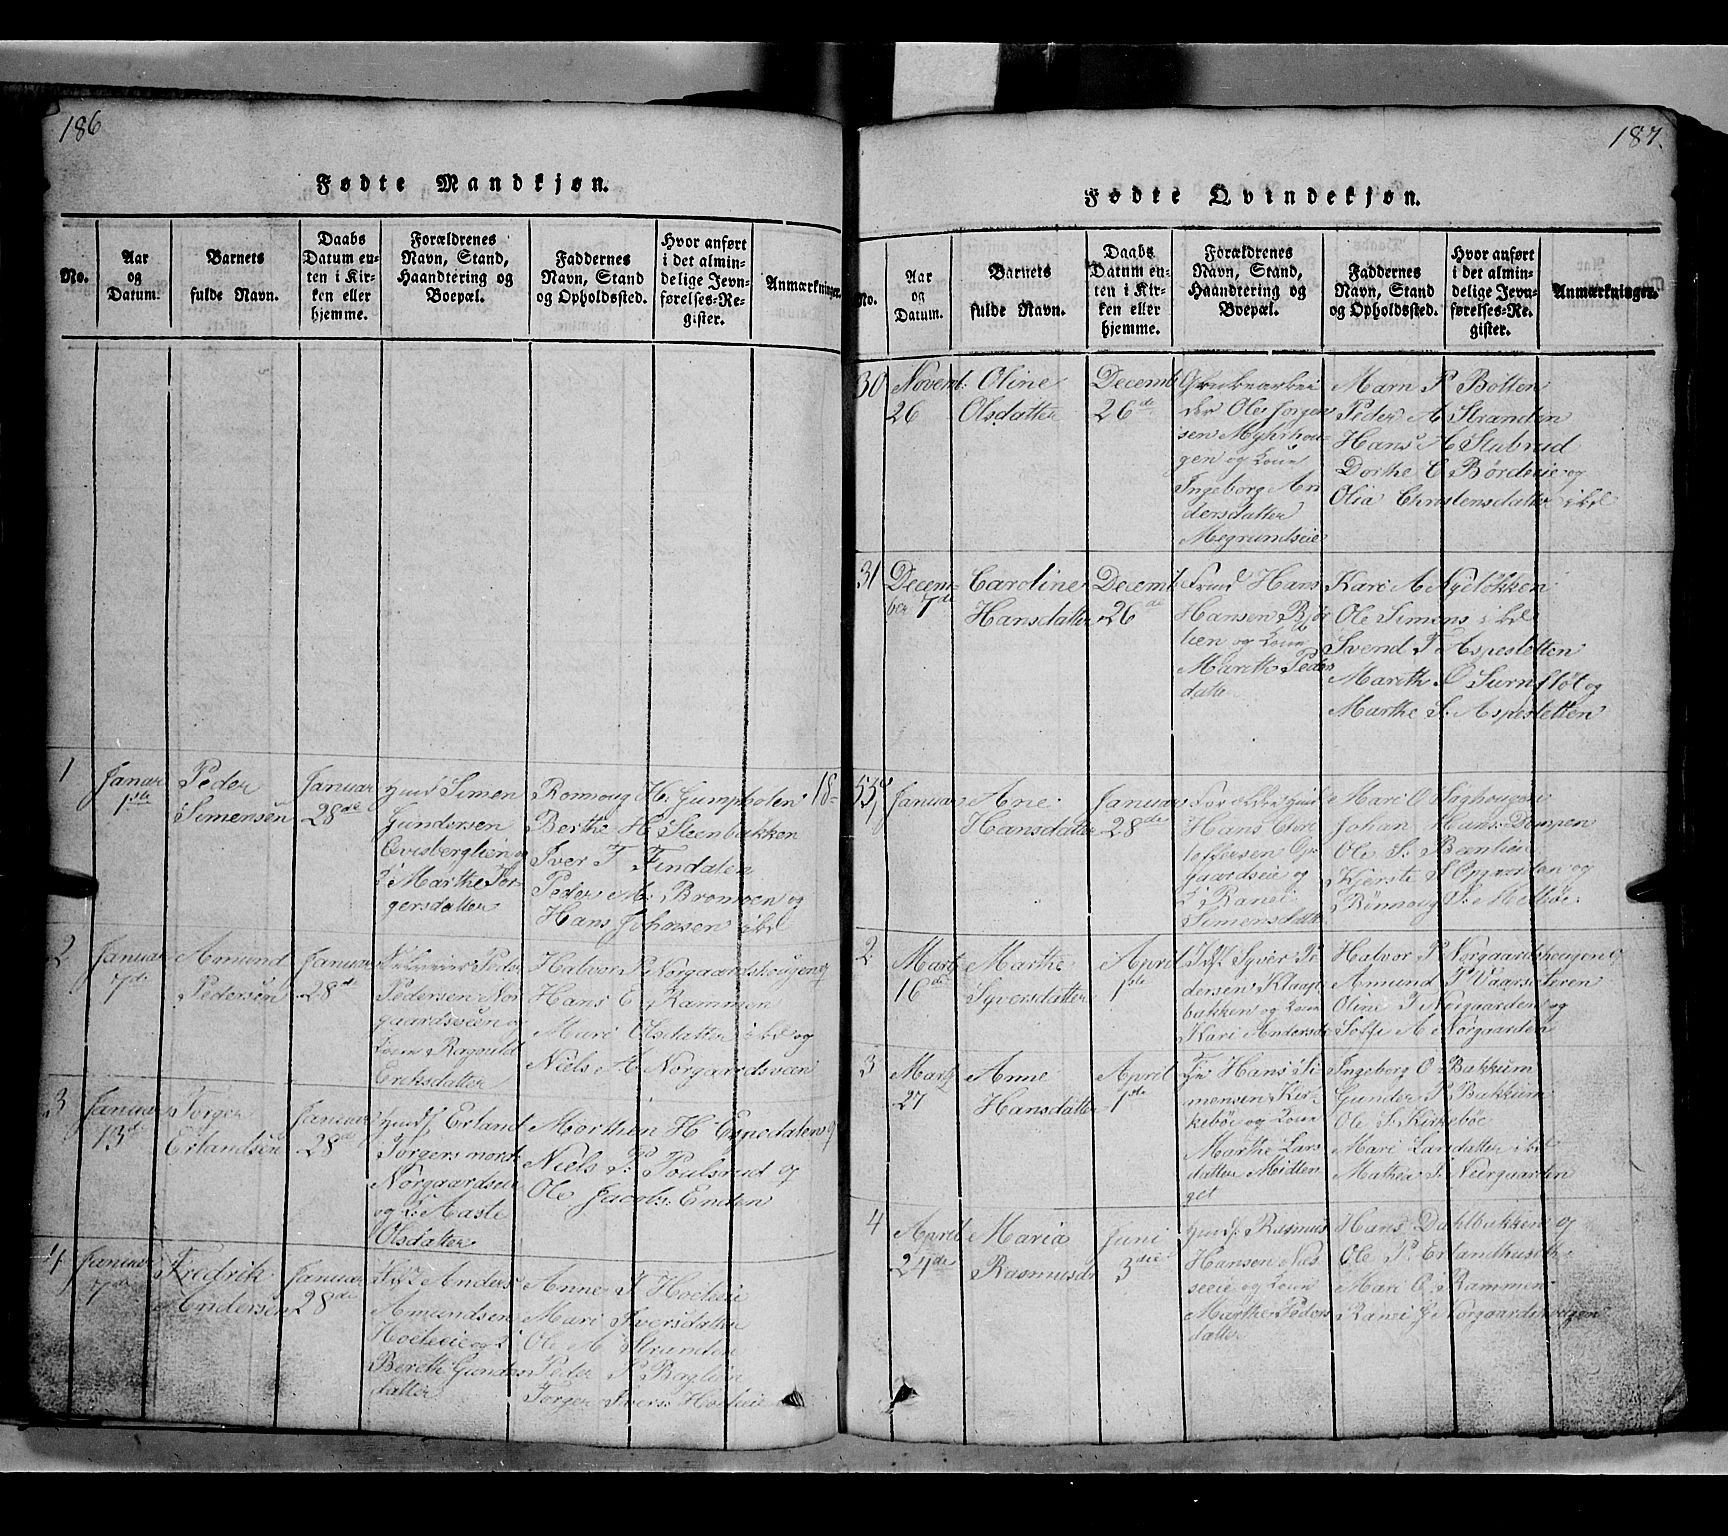 186
Fødte Mandkjøn.
No.
Aar
og
Datum.
Barnets
fulde Navn.
Daabs
Datum en-
ten i Kir-
ken eller
hjemme.
Forældrenes
Navn, Stand,
Haandtering og
Boepæl.
Faddernes
Navn, Stand
og Opholdssted.
Hvor anført
i det almin-
delige Jevn-
førelses-Re-
gister.
Anmærkninger.
1
Januar
1ste
Peder
Simensen
Januar
28de
Simen
Gundersen
Qvisberglien og
Marthe Tor-
gersdatter
Ronnoug H: Gumpholen
Berthe H Steenbakken
Iver T Findalen
Peder M: Bromoen og
Hans Johnsen
2
Januar
7de
Amund
Pedersen
Januar
28de
Peder
Pedersen Nor
gaardsveen og
Kone Ragnild
Eriksdatter
Halvor P Norgaardshougen og
Hans E Rammen
Mari Olsdatter og
Niels A Norgaardsveen
3
Januar
13de
Torger
Erlandsen
Januar
28de
Erland
Torgers
Norgaardseie
og K: Aaste
Olsdatter
Morthen H
Niels P: Poulsrud og
Ole Jacobs: Enden
4
Januar
7de
Fredrik
Andersen
Januar
28de
Anders
Amundsen
Berethe Gunders
datter
Anne I
Mari Iversdatter
Ole A Stranden
Peder P Baglien
Torger Ivers:
187.
Fødte Qvindekjøn.
No.
Aar
og
Datum.
Barnets
fulde Navn.
Daabs
Datum en-
ten i Kir-
ken eller
hjemme.
Forældrenes
Navn, Stand,
Haandtering og
Boepæl.
Faddernes
Navn, Stand
og Opholdssted.
Hvor anført
i det almin-
delige Jevn-
førelses-Re-
gister.
Anmærkninger.
30
Novemb:
26
Oline
Olsdatter
Decemb
26de
Grubearbei
der Ole Jorgen
sen Myhrhou-
gen og Kone
Ingeborg An
dersdatter
Megrundseie
Marn P Botten
Peder A Stranden
Hans A Stubrud
Dorthe C Børdeeie og
Olia Christensdatter
31
Decem-
ber 7de
Caroline
Hansdatter
Decemb
26de
Hans
Hansen Bjør
lien og Kone
Marethe Peders
datter
Kari A Nyeløkken
Ole Simens
Svend T Aspesletten
Mareth O Surnfløt og
Marthe S. Aspesletten
18-53
1
Januar
Ane
Hansdatter
Januar
28de
Hans Chri
toffersen
gaardseie og
K Ranei
Simensdatter
Mari O Saghougen
Johan Hans:
Ole S:
Kjersti S Opgaarden og
Rønnoug S.
2
Marts
16de
Marthe
Syversdatter
April
1ste
Syver Pe
dersen Klaapt
bakken og Kone
Kari Andersdr
Halvor P Norgaardshougen og
Amund P Vaarsæteren
Oline I Norgaarden og
Sofie A Norgaarden
3
Marts
27
Anne
Hansdatter
April
1ste
Hans Si
mensen Kir-
kebøe og Kone
Marthe Lars
datter Midten
get
Ingeborg O Bakkum
Gunder P Bakkum
Ole S. Kirkebøe
Mari Larsdatter
Mathea P Neergaarden
4
April
24de
Maria
Rasmusdr
Juni
3die
Rasmus
Hansen Næs
seeie og Kone
Marthe Peders
datter
Hans Dahlbakken og
Ole P Erlandhuseth
Mari O Rammen
Ranei J Norgaardshougen